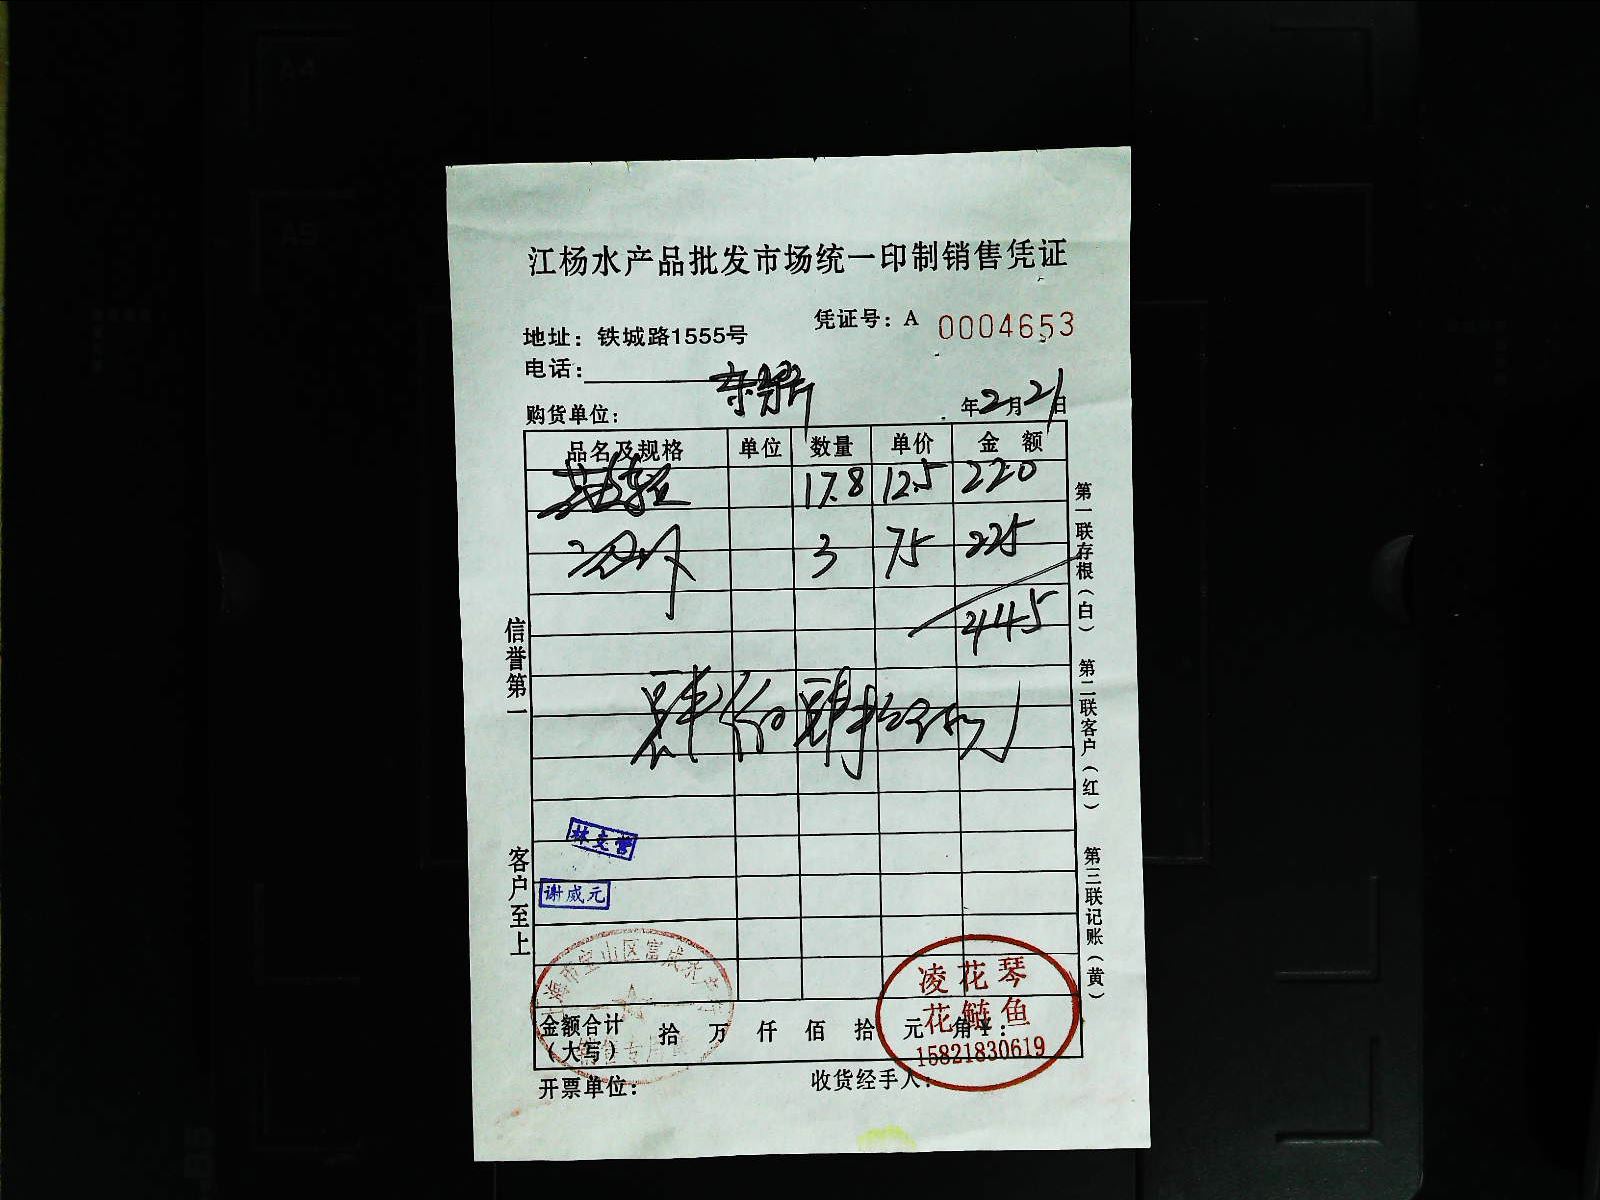 江杨水产品批发市场统一印制销售凭证
凭证号：A 0004653
地址：铁城路1555号
电话：
购货单位：
年2月21日
品名及规格 单位 数量 单价 金额
17.8 12.5 220
3 75 225
445
肆佰肆拾伍元
信誉第一
客户至上
第一联存根（白）
第二联客户（红）
第三联记账（黄）
林支营
谢威元
上海市宝山区富成水产
专用
凌花琴
花鲢鱼
15821830619
金额合计（大写） 拾 万 仟 佰 拾 元 角 ￥：
开票单位：
收货经手人：